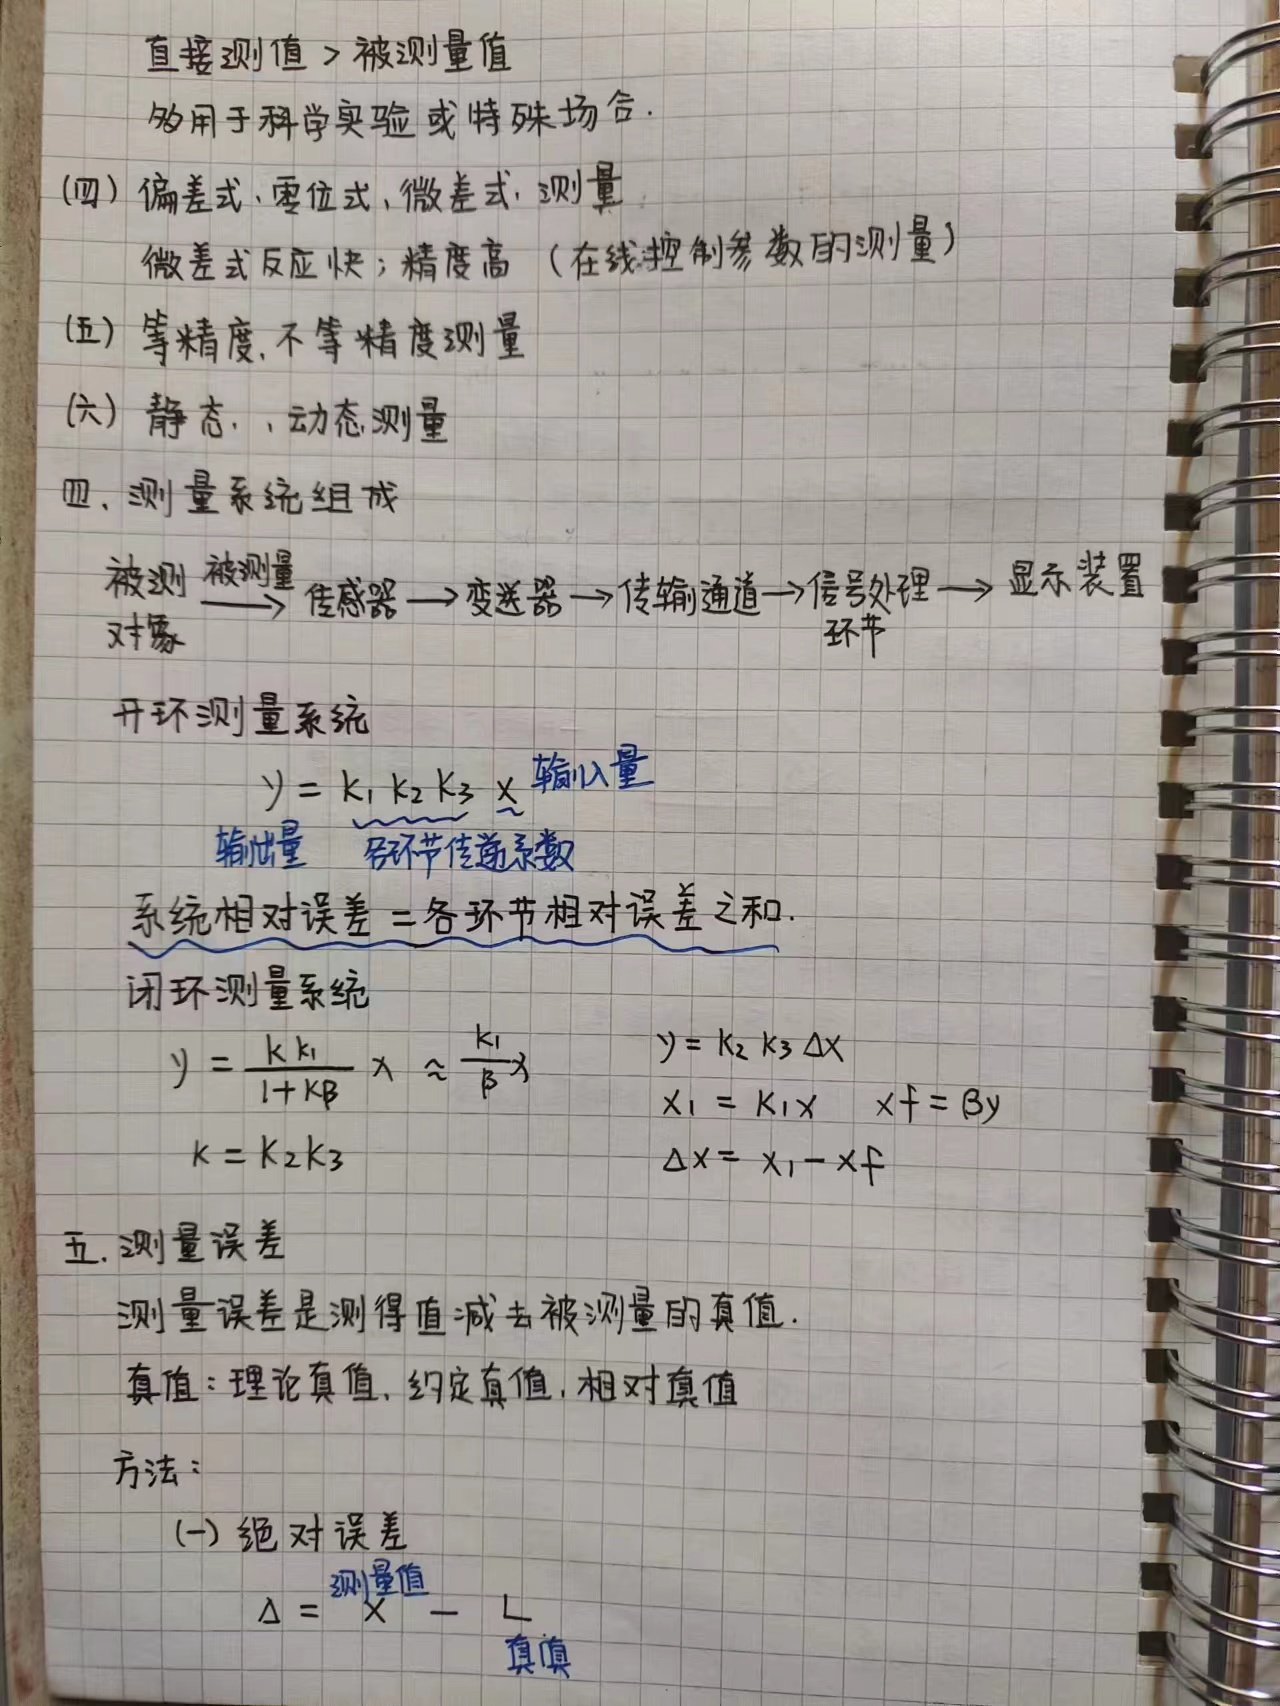 直接测值 > 被测量值
多用于科学实验或特殊场合.
(四) 偏差式、零位式、微差式、测量
微差式反应快；精度高 (在线控制参数的测量)
(五) 等精度、不等精度测量
(六) 静态、、动态测量
四、测量系统组成
被测对象 被测量→ 传感器 → 变送器 → 传输通道 → 信号处理环节 → 显示装置
开环测量系统
y = k₁ k₂ k₃ x 输入量
输出量 各环节传递系数
系统相对误差 = 各环节相对误差之和.
闭环测量系统
y = kk₁/(1+kβ) x ≈ k₁/β x y = k₂ k₃ Δx
x₁ = k₁x xf = βy
k = k₂k₃ Δx = x₁ - xf
五. 测量误差
测量误差是测得值减去被测量的真值.
真值：理论真值、约定真值、相对真值
方法：
(一) 绝对误差
测量值
Δ = x - L
真值